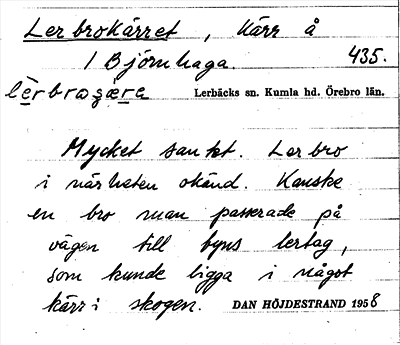 Lerbrokärret, Kärr å
/ Björnhaga 435.
lèrbrogære Lerbäcks sn. Kumla hd. Örebro län.
Mycket sankt. Lerbro
i närheten okänd. Kanske
en bro man passerade på
vägen till byns lertag,
som kunde ligga i något
kärr i skogen. DAN HÖJDESTRAND 1958